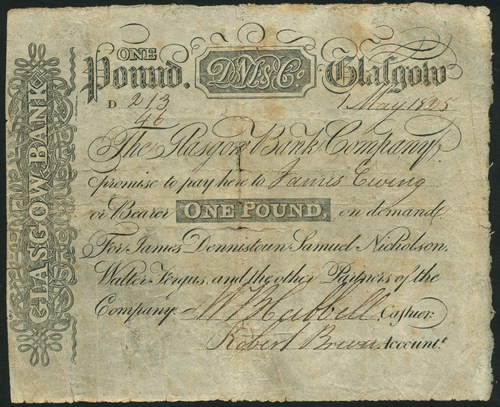 GLASGOW BANK
ONE
Pound. DMs&Co Glasgow
D 213/46 1 May 1825
The Glasgow Bank Company
promise to pay here to James Ewing
or Bearer ONE POUND. on demand
For James Dennistoun Samuel Nicholson,
Walter Fergus, and the other Partners of the
Company. Hubbell Cashier.
Robert Brown Account.t